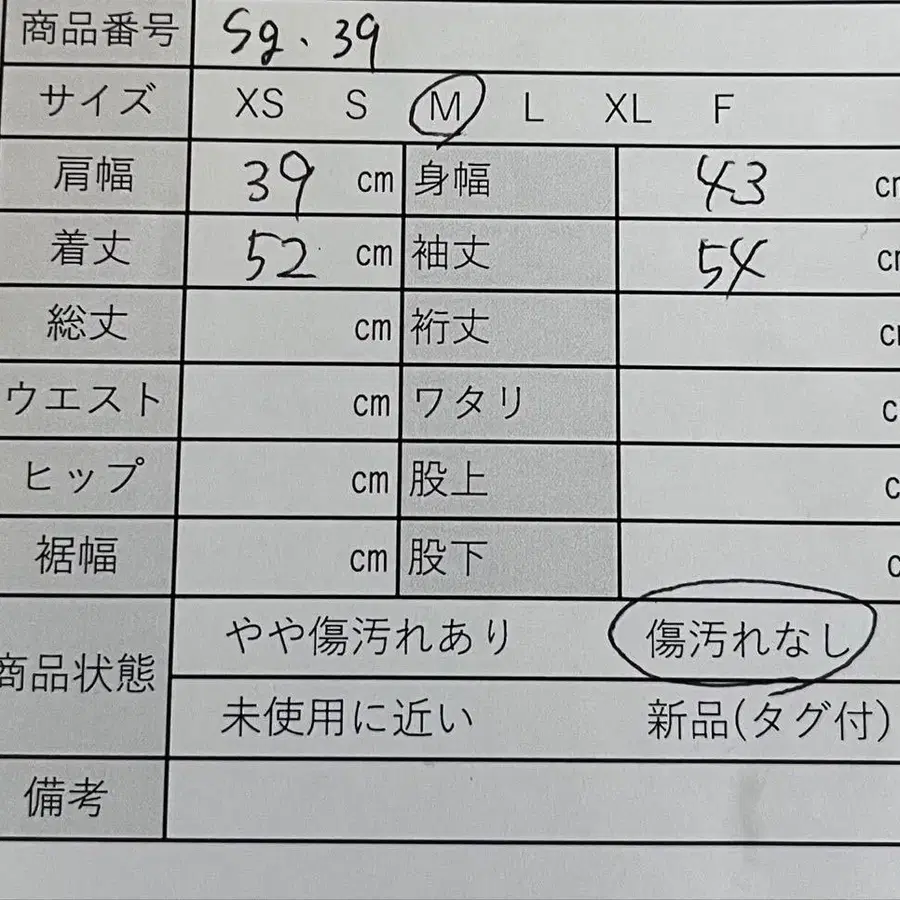 商品番号 Sg. 39
サイズ XS S M L XL F
肩幅 39 cm 身幅 43 cm
着丈 52 cm 袖丈 54 cm
総丈 cm 裄丈 c
ウエスト cm ワタリ c
ヒップ cm 股上 c
裾幅 cm 股下 c
やや傷汚れあり 傷汚れなし
商品状態
未使用に近い 新品(タグ付)
備考